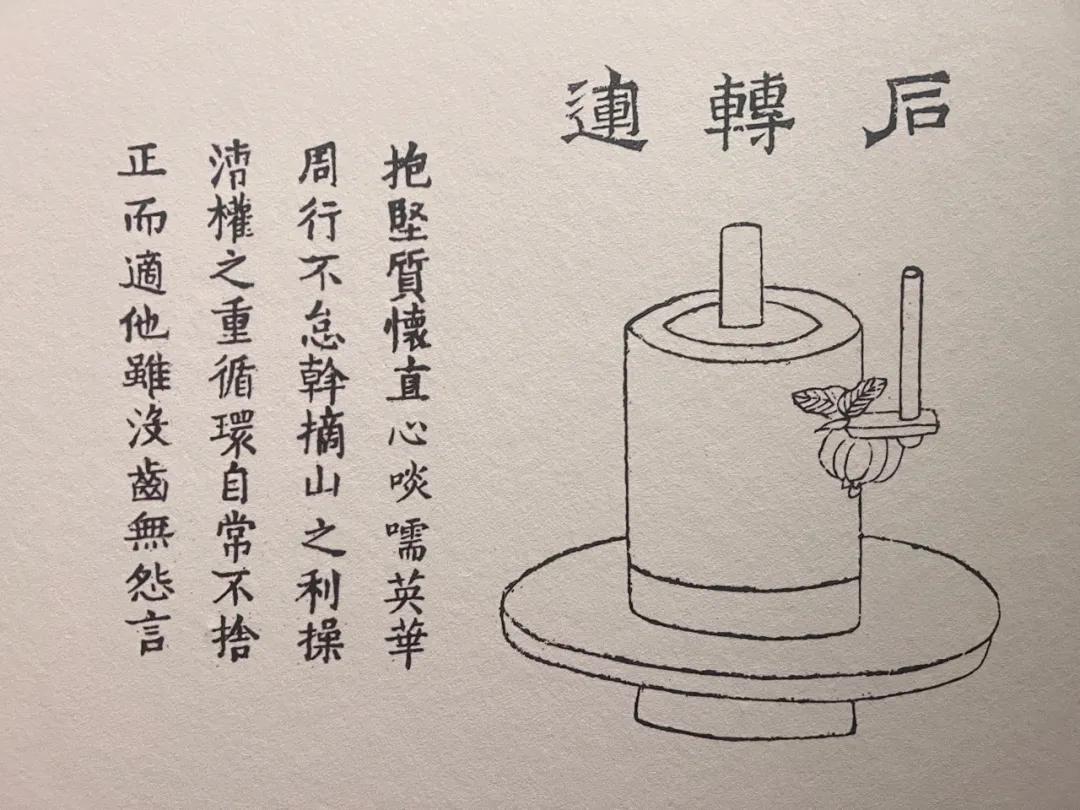 石轉運
抱堅質懷直心啖嚅英華
周行不怠幹摘山之利操
漕權之重循環自常不捨
正而適他雖沒齒無怨言